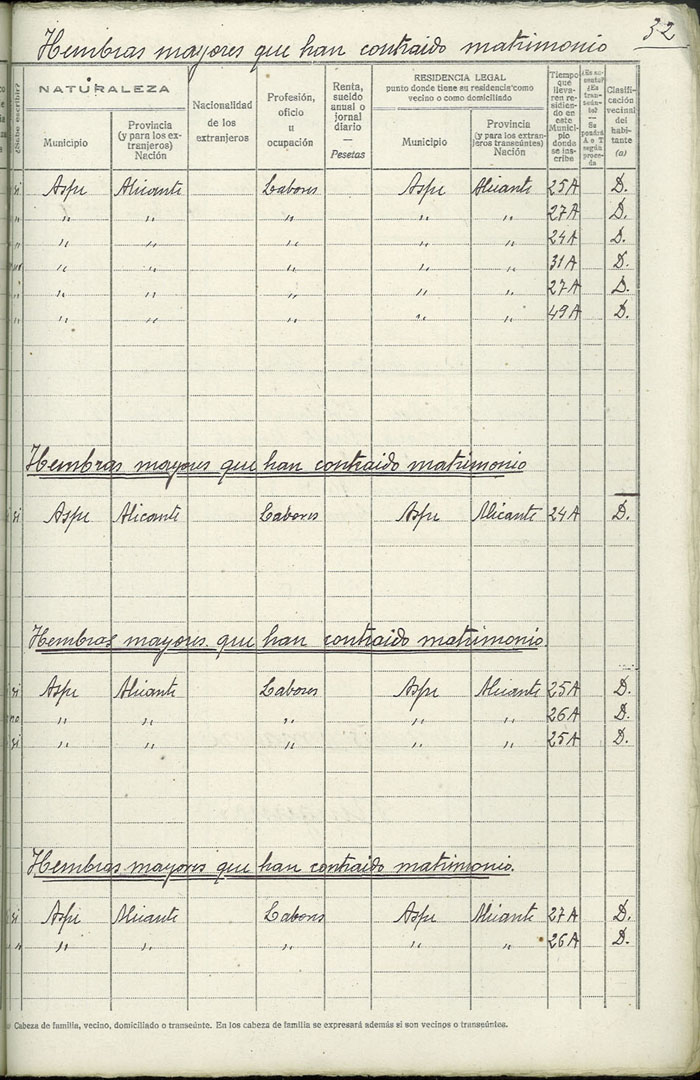 32
Hembras mayores que han contraido matrimonio
¿Sabe escribir?
NATURALEZA
Municipio
Provincia (y para los extranjeros) Nación
Nacionalidad de los extranjeros
Profesión, oficio u ocupación
Renta, sueldo anual o jornal diario — Pesetas
RESIDENCIA LEGAL
punto donde tiene su residencia como vecino o como domiciliado
Municipio
Provincia (y para los extranjeros transeúntes) Nación
Tiempo que llevaren residiendo en este Municipio donde se inscribe
¿Es ausente? ¿Es transeúnte? — Se pondrá A o T según proceda
Clasificación vecinal del habitante (a)
si Aspe Alicante Labores Aspe Alicante 25 A D.
" " " " " " 27 A D.
" " " " " 24 A D.
" " " " " 31 A D.
" " " " " " 27 A D.
" " " " " " 49 A D.
Hembras mayores que han contraido matrimonio
si Aspe Alicante Labores Aspe Alicante 24 A D.
Hembras mayores que han contraido matrimonio.
si Aspe Alicante Labores Aspe Alicante 25 A D.
no " " " " " 26 A D.
si " " " " " 25 A D.
Hembras mayores que han contraido matrimonio.
si Aspe Alicante Labores Aspe Alicante 27 A D.
" " " " " " 26 A D.
Cabeza de familia, vecino, domiciliado o transeúnte. En los cabeza de familia se expresará además si son vecinos o transeúntes.